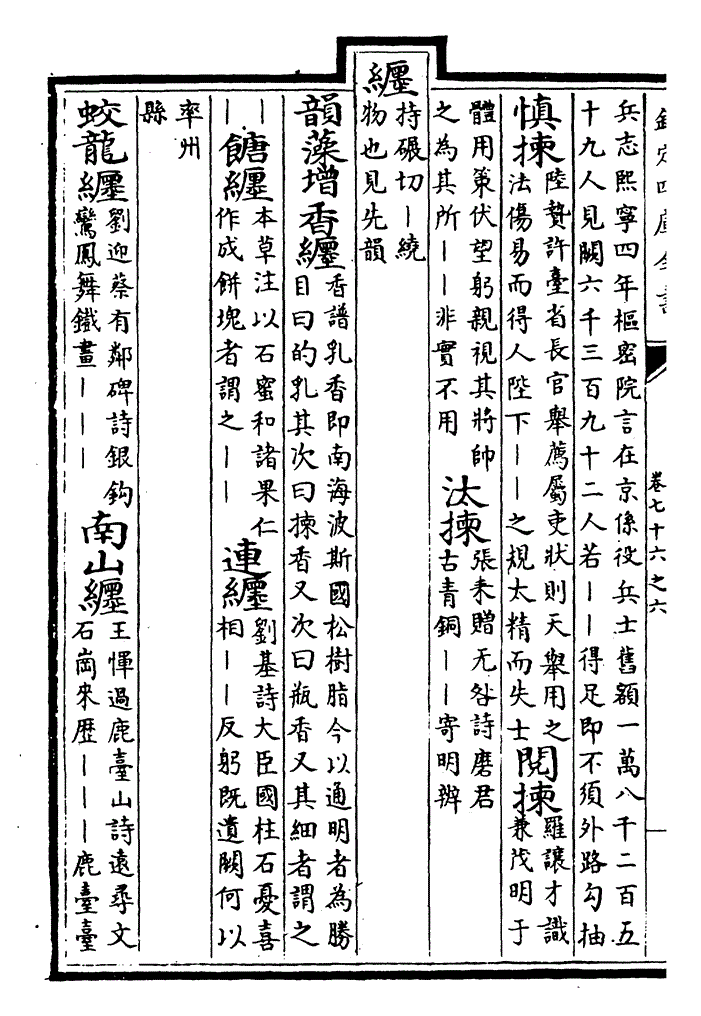 欽定四庫全書
卷七十六之六
兵志熙寧四年樞密院言在京係役兵士舊額一萬八千二百五
十九人見闕六千三百九十二人若丨丨得足即不須外路勾抽
慎揀
陸贄許臺省長官舉薦屬吏狀則天舉用之
法傷易而得人陛下丨丨之規太精而失士
閱揀
羅讓才識
兼茂明于
體用策伏望躬親視其將帥
之為其所丨丨非實不用
汰揀
張耒贈无咎詩磨君
古青銅丨丨寄明辨
纒
持碾切丨繞
物也見先韻
韻藻增香纒
香譜乳香即南海波斯國松樹脂今以通明者為勝
目曰的乳其次曰揀香又次曰瓶香又其細者謂之
丨
丨
餹纒
本草注以石蜜和諸果仁
作成餅塊者謂之丨丨
連纒
劉基詩大臣國柱石憂喜
相丨丨反躬既遺闕何以
率州
縣
蛟龍纒
劉迎蔡有鄰碑詩銀鈎
鸞鳳舞鐵畫丨丨丨
南山纒
王惲過鹿臺山詩遠尋文
石崗來歷丨丨丨鹿臺臺